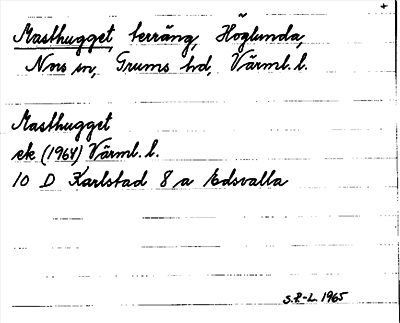 +
Masthugget, terräng, Höglunda,
Nors sn, Grums hd, Värml. l.
Masthugget
ek (1964) Värml. l.
10 D Karlstad 8 a Edsvalla
S.Z-L. 1965